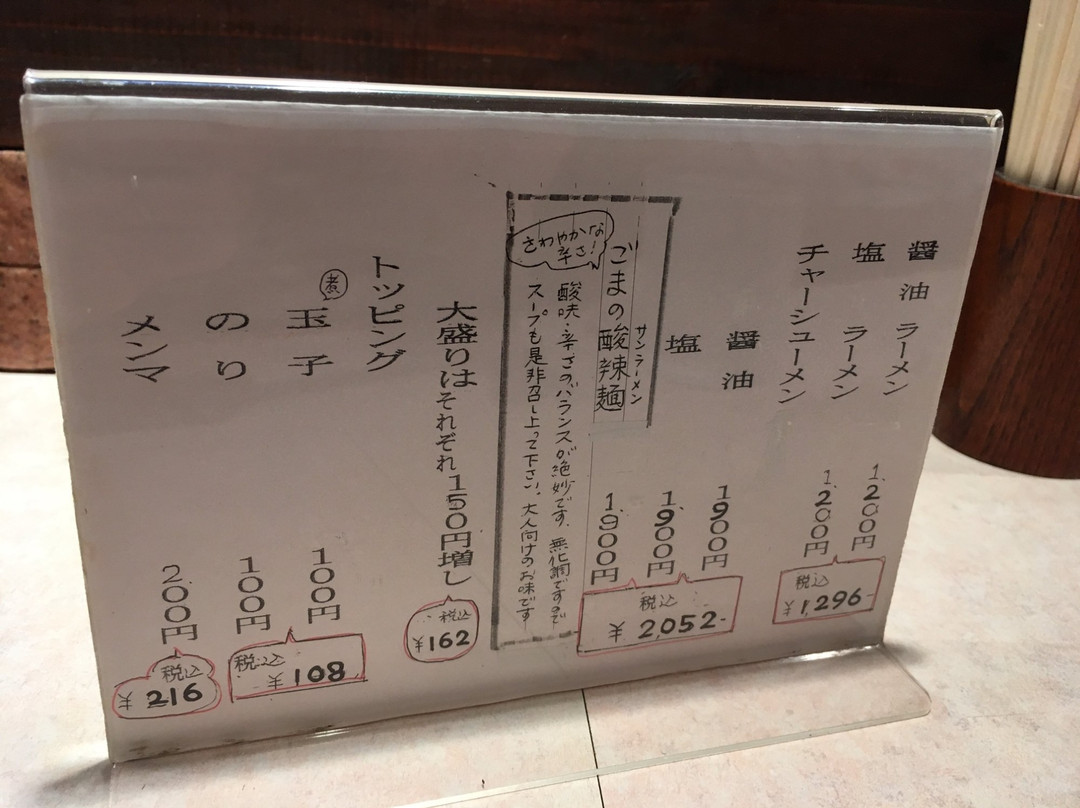 醤油ラーメン 1,200円
塩ラーメン 1,200円
税込 ¥1,296-
チャーシューメン
醤油 1900円
塩 1,900円
サンラーメン
ごまの酸辣麺 1,900円
税込 ¥2,052-
さわやかな辛さ!
酸味・辛さのバランスが絶妙です。無化調ですので
スープも是非召し上って下さい。大人向けのお味です
大盛りはそれぞれ150円増し
税込 ¥162
トッピング
煮玉子 100円
のり 100円
税込 ¥108
メンマ 200円
税込 ¥216